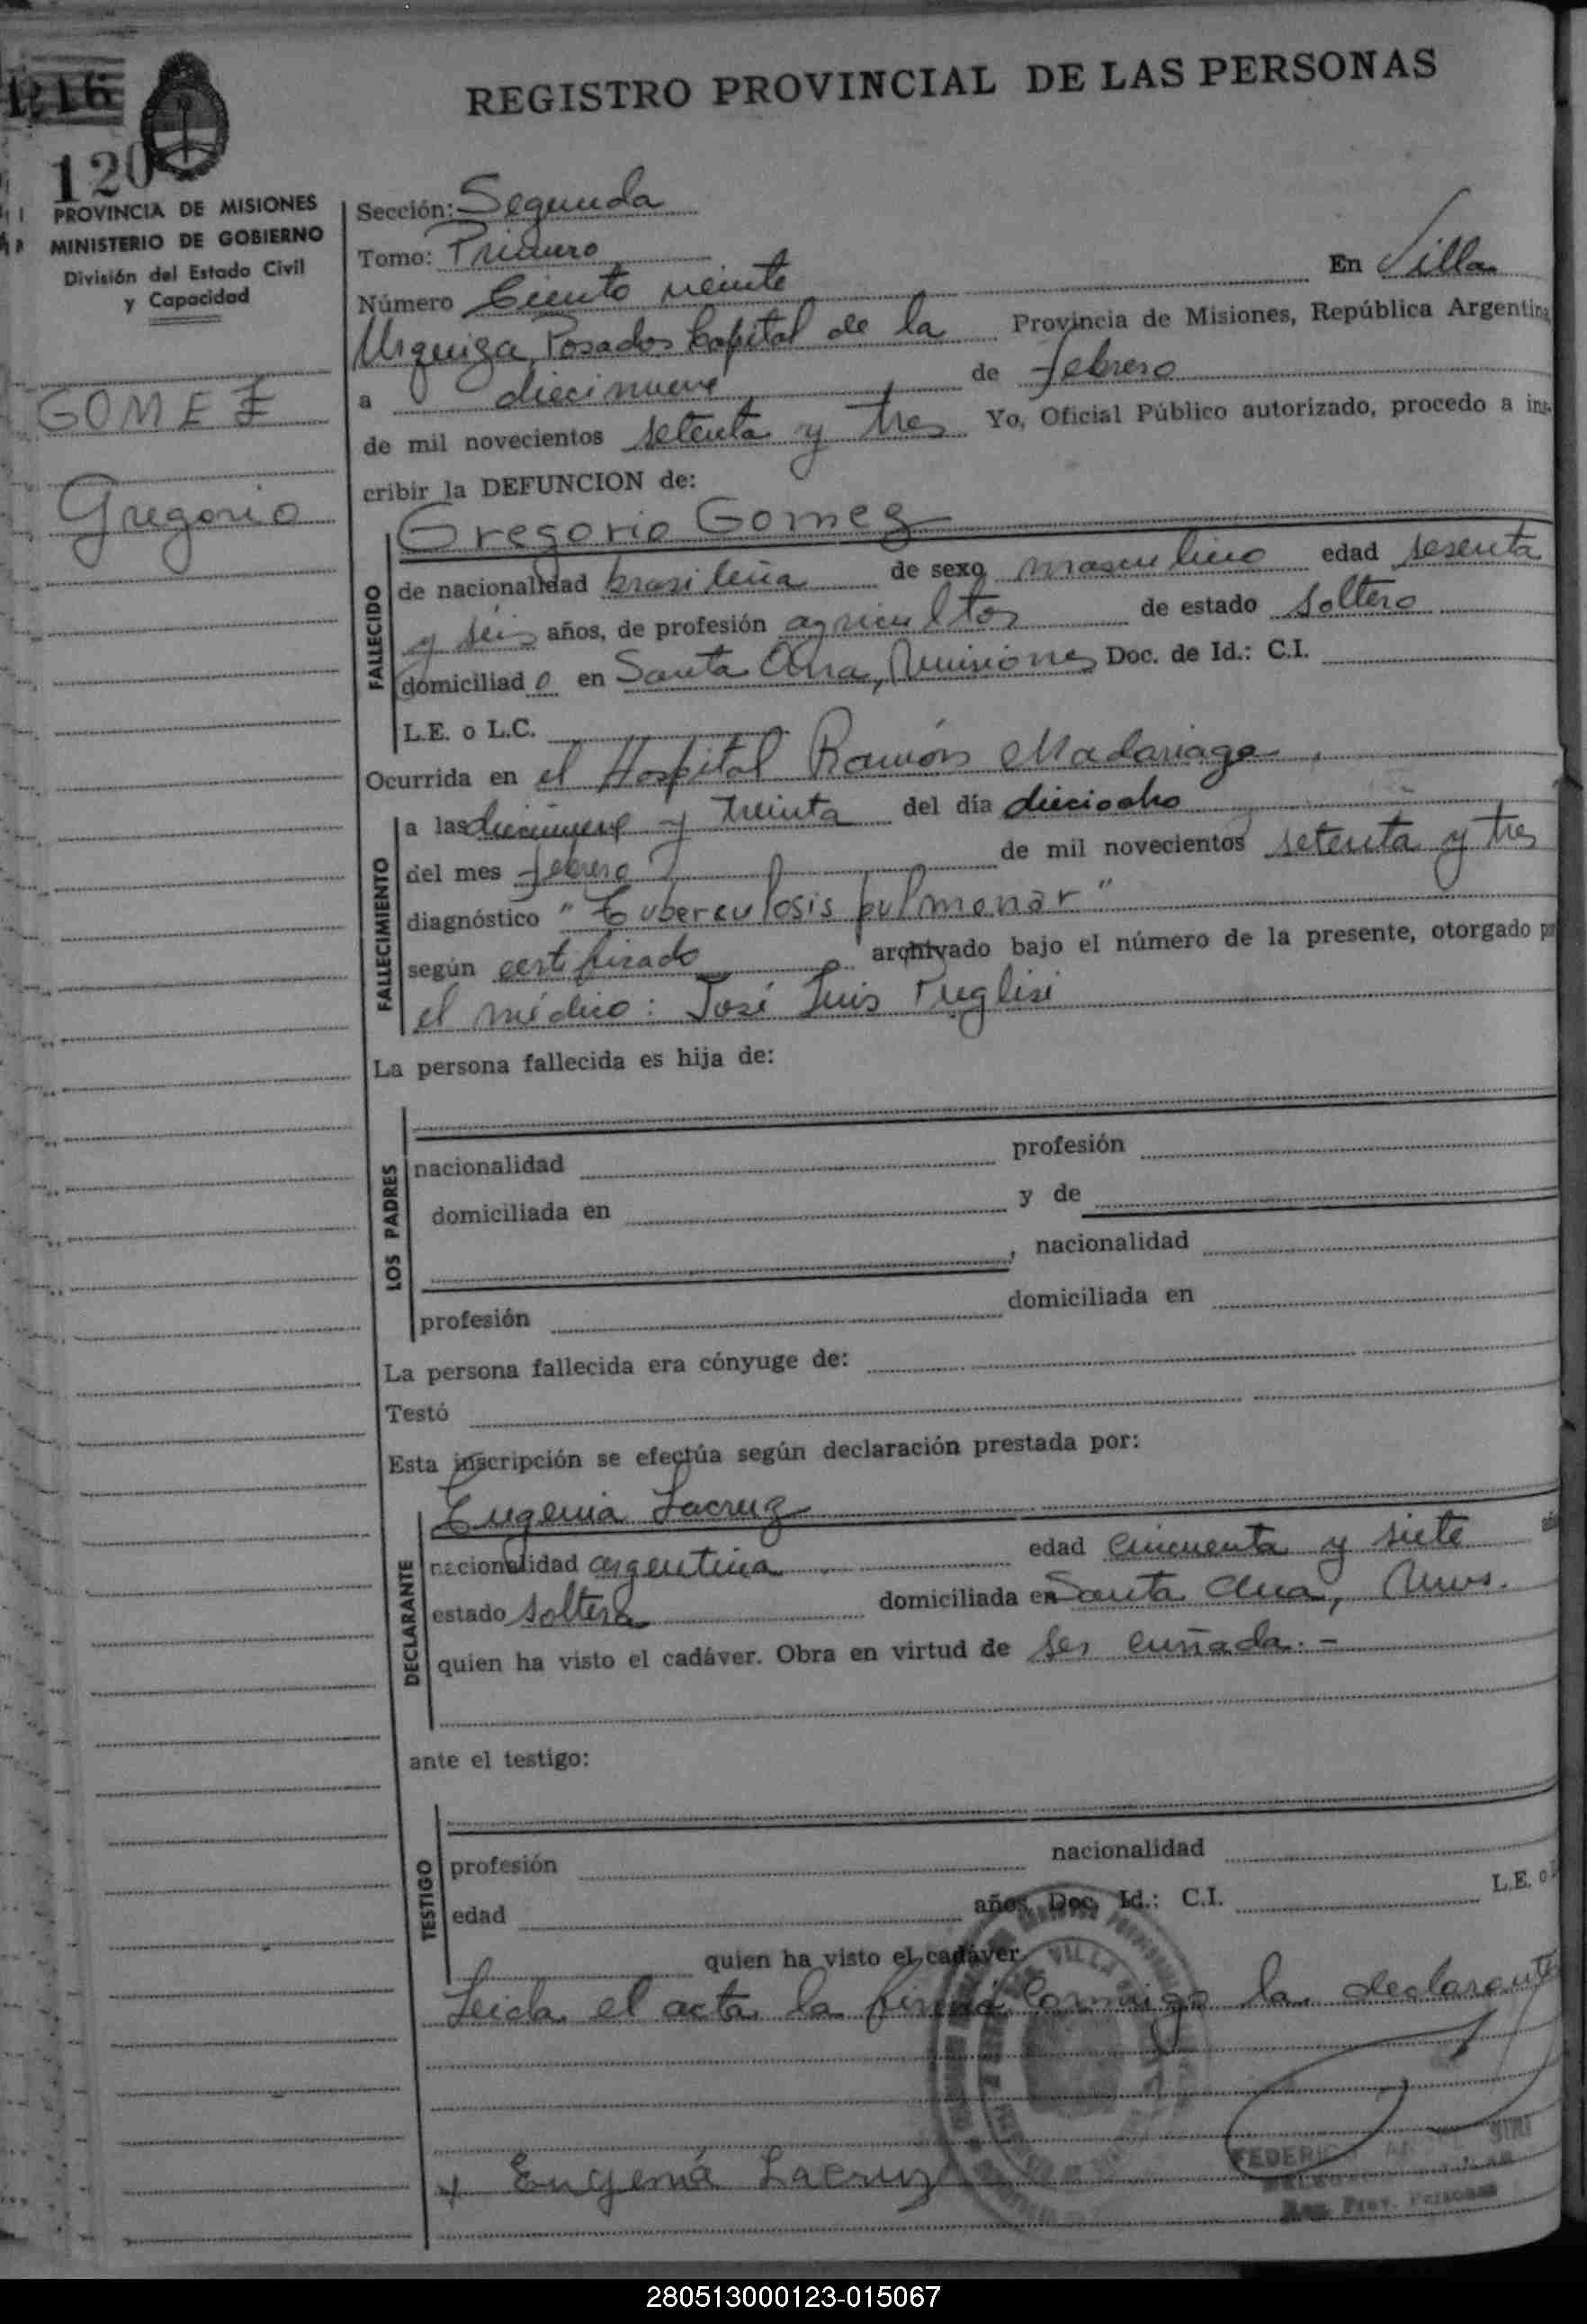 REGISTRO PROVINCIAL DE LAS PERSONAS
1216
120
PROVINCIA DE MISIONES
MINISTERIO DE GOBIERNO
División del Estado Civil
y Capacidad
GOMEZ
Gregorio
Sección: Segunda
Tomo: Primero
Número Ciento veinte En Villa
Urquiza, Posadas Capital de la Provincia de Misiones, República Argentina
a diecinueve de febrero
de mil novecientos setenta y tres Yo, Oficial Público autorizado, procedo a ins-
cribir la DEFUNCION de:
Gregorio Gomez
FALLECIDO
de nacionalidad brasileña de sexo masculino edad sesenta
y seis años, de profesión agricultor de estado soltero
domiciliado en Santa Ana, Misiones Doc. de Id.: C.I.
L.E. o L.C.
Ocurrida en el Hospital Ramón Madariaga.
FALLECIMIENTO
a las diecinueve y treinta del día dieciocho
del mes febrero de mil novecientos setenta y tres
diagnóstico "Tuberculosis pulmonar"
según certificado archivado bajo el número de la presente, otorgado por
el médico: José Luis Puglisi
La persona fallecida es hija de:
LOS PADRES
nacionalidad profesión
domiciliada en y de
, nacionalidad
profesión domiciliada en
La persona fallecida era cónyuge de:
Testó
Esta inscripción se efectúa según declaración prestada por:
Eugenia Lacruz
DECLARANTE
nacionalidad argentina edad cincuenta y siete
estado soltera domiciliada en Santa Ana, Mnes.
quien ha visto el cadáver. Obra en virtud de ser cuñada.-
ante el testigo:
TESTIGO
profesión nacionalidad
edad años, Doc. Id.: C.I. L.E. o
quien ha visto el cadáver
Leida el acta la firma conmigo la declarante
x Eugenia Lacruz
FEDERICO
Reg. Prov. Personas
280513000123-015067